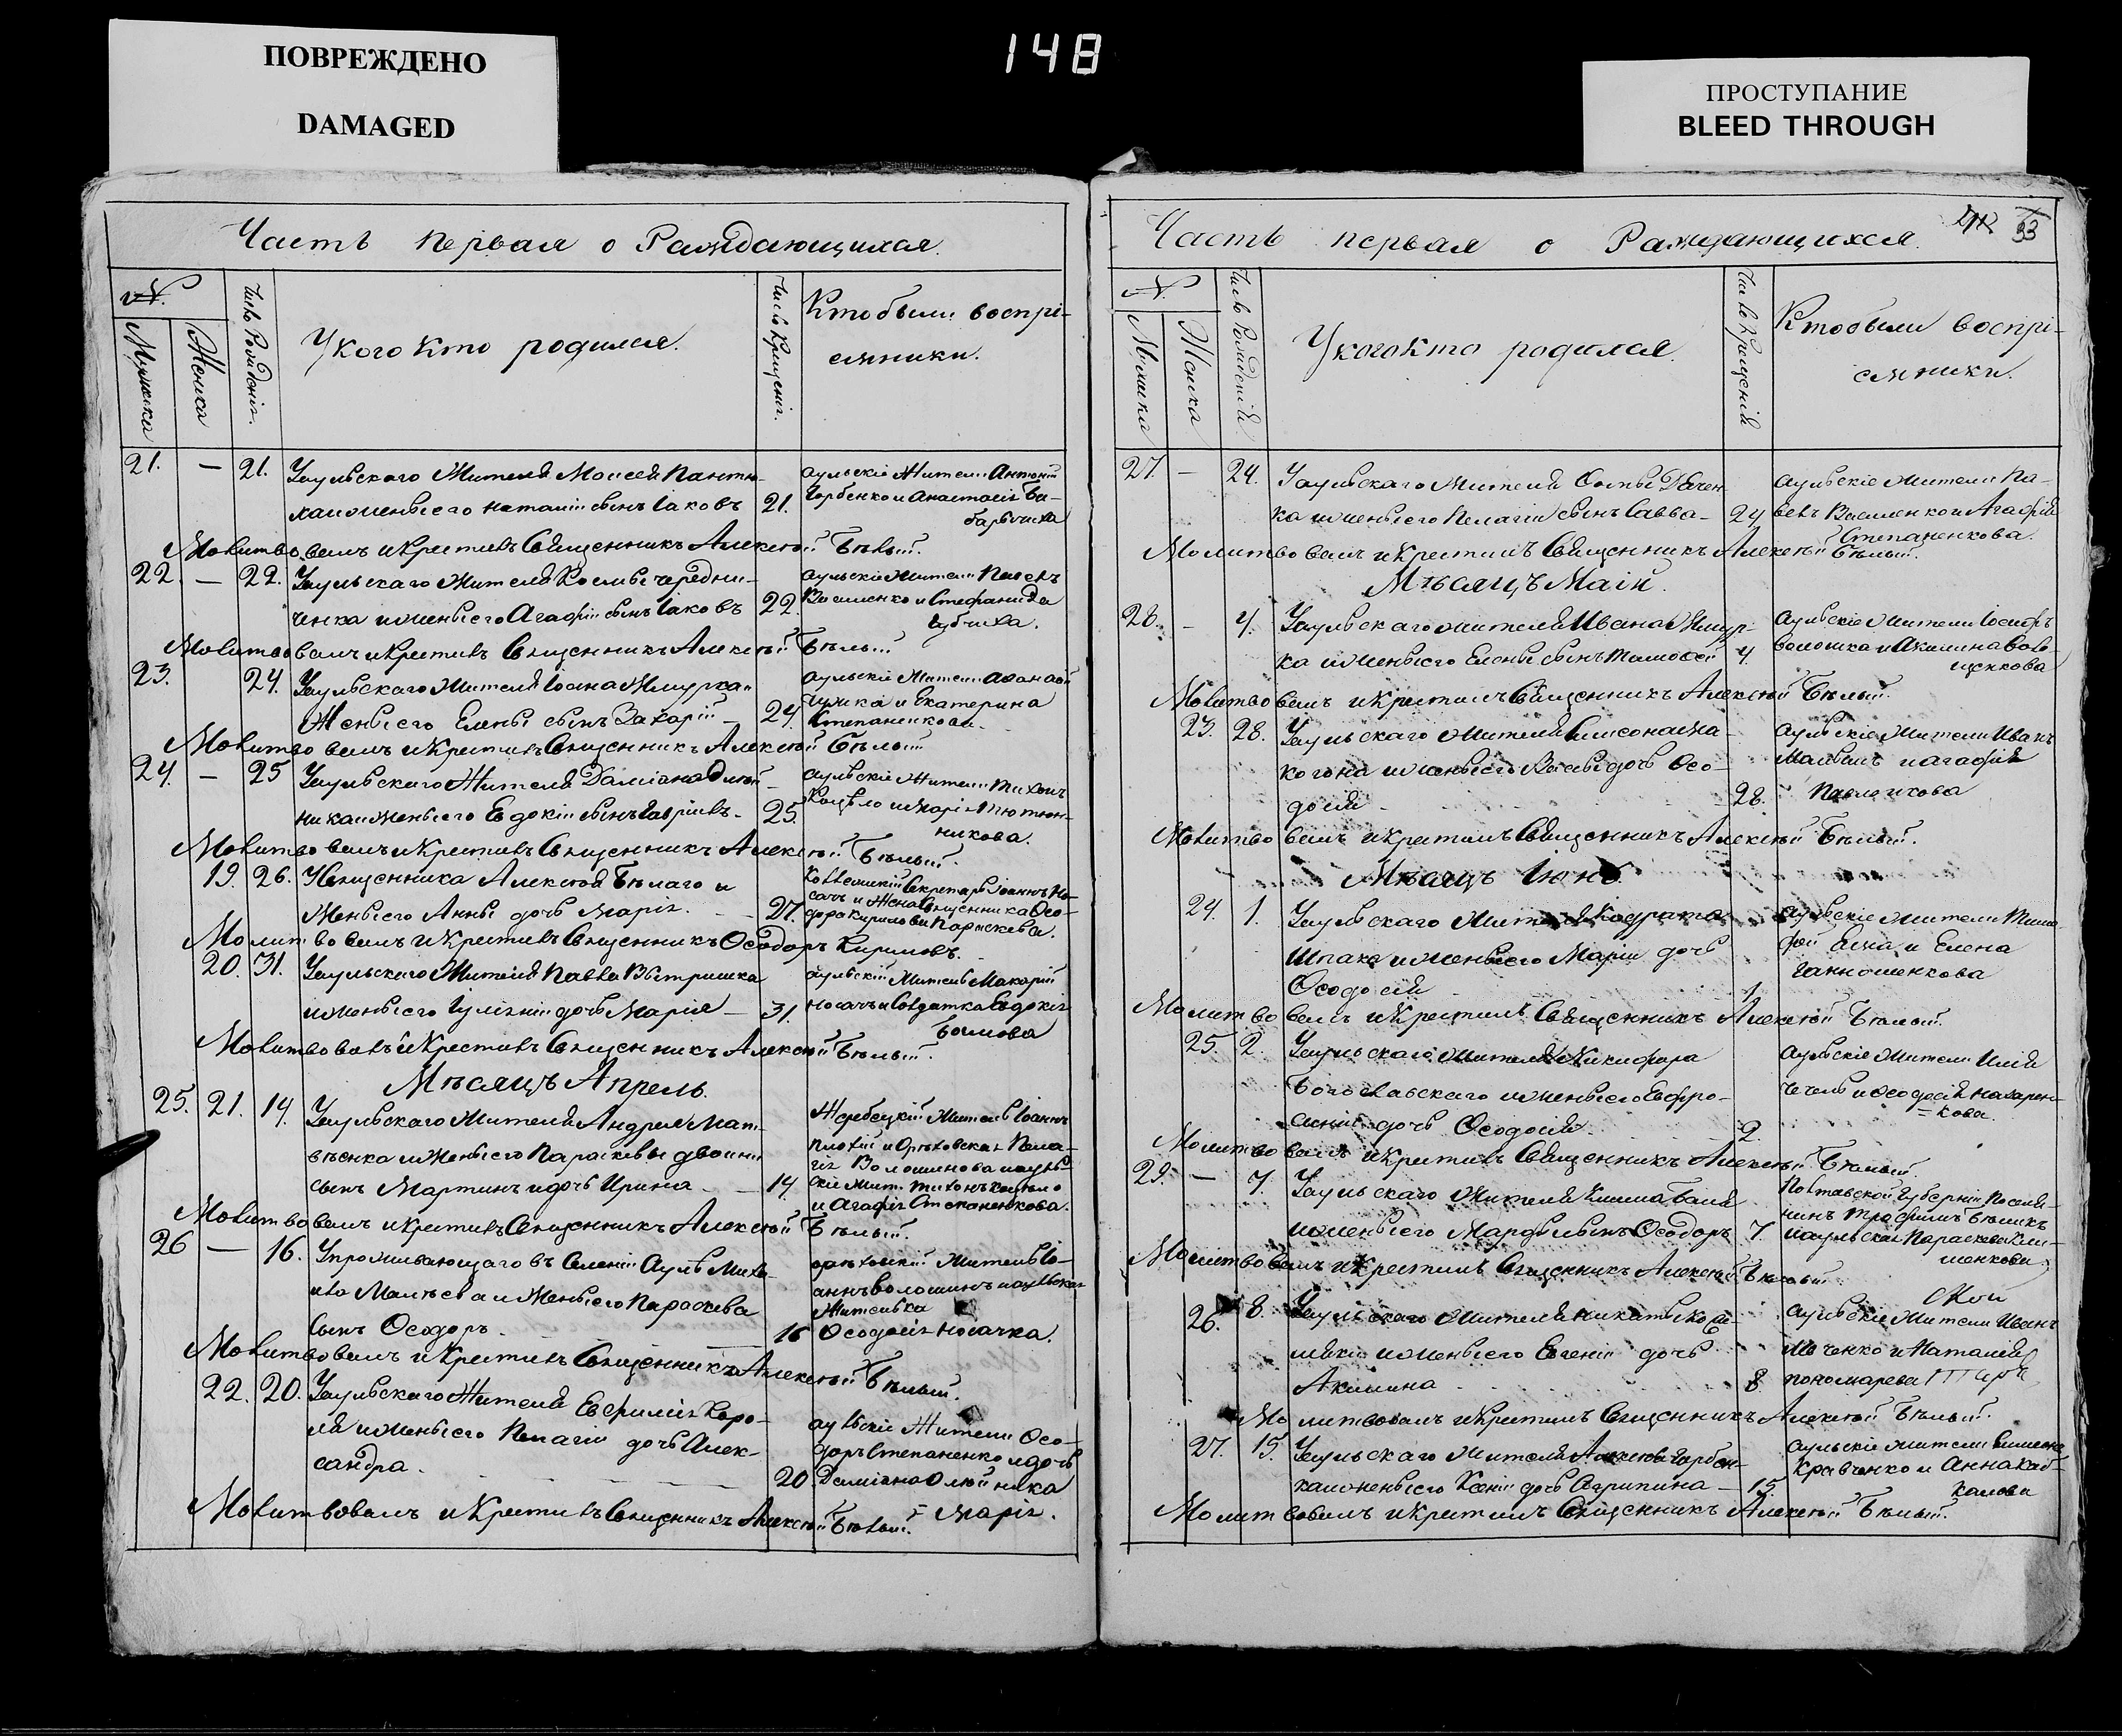 ПОВРЕЖДЕНО
DAMAGED
148
ПРОСТУПАНИЕ
BLEED THROUGH
Часть первая о Раждающихся.
№.
Мужеска
Женска
Число Рождения.
У кого кто родился.
Число Крещения.
Кто были воспрі-
емники.
21. — 21. У аульского Жителя Моисея Пантю-
хи и жены его Наталіи сынъ Іаковъ 21.
аульскіе Жители Антоній
Горбенко и Анастасія Ба-
Молитвовалъ и Крестилъ Священникъ Алексѣй Бѣлый.
22. — 22. У аульскаго Жителя Космы Чередни-
ченка и жены его Агафіи сынъ Іаковъ 22.
аульскіе Жители Павелъ
Василенко и Стефанида
Молитвовалъ и Крестилъ Священникъ Алексѣй Бѣлый
23. 24. У аульскаго Жителя Іоана Жмурка и
Жены его Елены сынъ Захарій — 24.
аульскіе Жители
и Екатерина
Степаненкова.
Молитвовалъ и Крестилъ Священникъ Алексѣй Бѣлый
24. — 25 У аульскаго Жителя Даміана Олей-
ника и жены его Евдокіи сынъ Гавріилъ. 25.
аульскіе Жители Тихонъ
Коцъло и Марія Тютюн-
никова.
Молитвовалъ и Крестилъ Священникъ Алексѣй Бѣлый.
19. 26. У Священника Алексѣя Бѣлаго и
Жены его Анны дочь Марія. — 27.
Коллежскій Секретарь Іоаннъ Но-
сачъ и Жена Священника Ѳео-
дора Кирилова Параскева.
Молитвовалъ и Крестилъ Священникъ Ѳеодоръ Кириловъ.
20. 31. У аульскаго Жителя Павла Вытришка
и жены его Іуліаніи дочь Марія — 31.
аульскій Житель Макарій
Носачъ и Солдатка Евдокія
Молитвовалъ и Крестилъ Священникъ Алексѣй Бѣлый.
Мѣсяцъ Апрель.
25. 21. 14. У аульскаго Жителя Андрея Мат-
вѣенка и Жены его Параскевы двойни
сынъ Мартинъ и дочь Ирина — 14.
Жеребецкій Житель Іоаннъ
Плохій и Орѣховская Пела-
гія Волошинова и ауль-
скіе Жит. Тихонъ Коцъло
и Агафія Степаненкова.
Молитвовалъ и Крестилъ Священникъ Алексѣй Бѣлый.
26 — 16. У проживающаго въ Селеніи Аулѣ Миха-
ила Малѣева и Жены его Параскева
сынъ Ѳеодоръ. 16
орѣховскій Житель Іо-
аннъ Волошинъ и аульская
Жителька
Ѳеодосія Носачка.
Молитвовалъ и Крестилъ Священникъ Алексѣй Бѣлый.
22. 20. У аульскаго Жителя Евфимія Коро-
ля и жены его Пелагіи дочь Алек-
сандра. 20
аульскіе Жители Ѳео-
доръ Степаненко и дочь
Даміана Олейника
Марія.
Молитвовалъ и Крестилъ Священникъ Алексѣй Бѣлый.
Часть первая о Раждающихся.
33
№.
Мужеска
Женска
Число Рожденія
У кого кто родился.
Число Крещенія
Кто были воспрі-
емники.
27. — 24. У аульскаго Жителя
ка и жены его Пелагіи сынъ Савва — 24
аульскіе Жители Па-
велъ Василенко и Агафія
Степаненкова.
Молитвовалъ и Крестилъ Священникъ Алексѣй Бѣлый.
Мѣсяцъ Маій.
28. — 4. У аульскаго жителя Ивана Жмур-
ка и жены его Елены сынъ Тимофей 4.
аульскіе Жители Іосифъ
Волошка и Акилина
Молитвовалъ и Крестилъ Священникъ Алексѣй Бѣлый.
23. 28. У аульскаго Жителя Симеона Ма-
когона и жены его Вассы дочь Ѳео-
досія 28.
аульскіе Жители Иванъ
и Агафія
Павленкова
Молитвовалъ и Крестилъ Священникъ Алексѣй Бѣлый.
Мѣсяцъ Іюнь.
24. 1. У аульскаго Жителя Кодрата
Шпака и жены его Маріи дочь
Ѳеодосія 1.
аульскіе Жители Тимо-
фей и Елена
Молитвовалъ и Крестилъ Священникъ Алексѣй Бѣлый.
25. 2. У аульскаго Жителя Никифора
Богославскаго и жены его Евфро-
синіи дочь Ѳеодосія. 2.
аульскіе Жители Илія
и Ѳеодосія Назарен-
кова.
Молитвовалъ и Крестилъ Священникъ Алексѣй Бѣлый.
29. — 7. У аульскаго Жителя
и жены его Марфы сынъ Ѳеодоръ 7.
Полтавской Губерніи Поселя-
нинъ Трофимъ Бѣликъ
и аульская Параскева Кли-
менкова.
Молитвовалъ и Крестилъ Священникъ Алексѣй Бѣлый.
26. 8. У аульскаго Жителя Никиты
и жены его Евгеніи дочь
Акилина 8.
аульскіе Жители Иванъ
и Наталія
Пономарева
Молитвовалъ и Крестилъ Священникъ Алексѣй Бѣлый.
27. 15. У аульскаго Жителя Алексѣя Горбен-
ка и жены его Ксеніи дочь Агрипина — 15.
аульскіе Жители Симеонъ
Кравченко и Анна
Молитвовалъ и Крестилъ Священникъ Алексѣй Бѣлый.